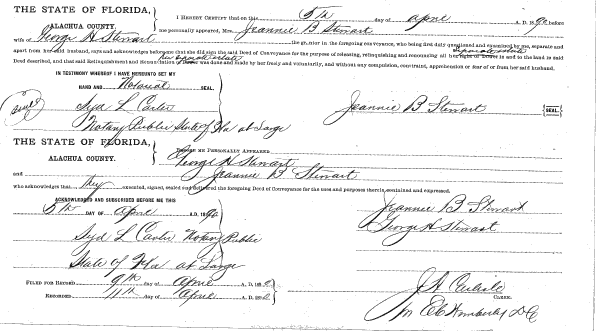 THE STATE OF FLORIDA,
ALACHUA COUNTY.
I HEREBY CERTIFY that on this 5th day of april A. D. 18 before
me personally appeared, Mrs. Jeannie B Stewart
wife of George H. Stewart the grantor in the foregoing conveyance, who being first duly questioned and examined by me, separate and
apart from her said husband, says and acknowledges before me that she did sign the said Deed of Conveyance for the purpose of releasing, relinquishing and renouncing all her right of in and to the land in said
separate estate
Deed described, and that said Relinquishment and Renunciation of was done and made by her freely and voluntarily, and without any compulsion, constraint, apprehension or fear of or from her said husband.
her separate estate
IN TESTIMONY WHEREOF I HAVE HEREUNTO SET MY
HAND AND Notarial SEAL.
Syd L. Carter
Notary Public State of Fla at Large
Jeannie B Stewart {SEAL.}
THE STATE OF FLORIDA,
ALACHUA COUNTY.
BEFORE ME PERSONALLY APPEARED
George H Stewart
and Jeannie B Stewart
who acknowledges that they executed, signed, sealed and delivered the foregoing Deed of Conveyance for the uses and purposes therein contained and expressed.
ACKNOWLEDGED AND SUBSCRIBED BEFORE ME THIS
5th DAY OF april A.D. 18
Syd L Carter Notary Public
State of Fla at Large
Jeannie B Stewart
George H Stewart
FILED FOR RECORD 9th day of April A. D. 18
RECORDED 11th day of April A. D. 18
J A Carlisle
CLERK.
D C